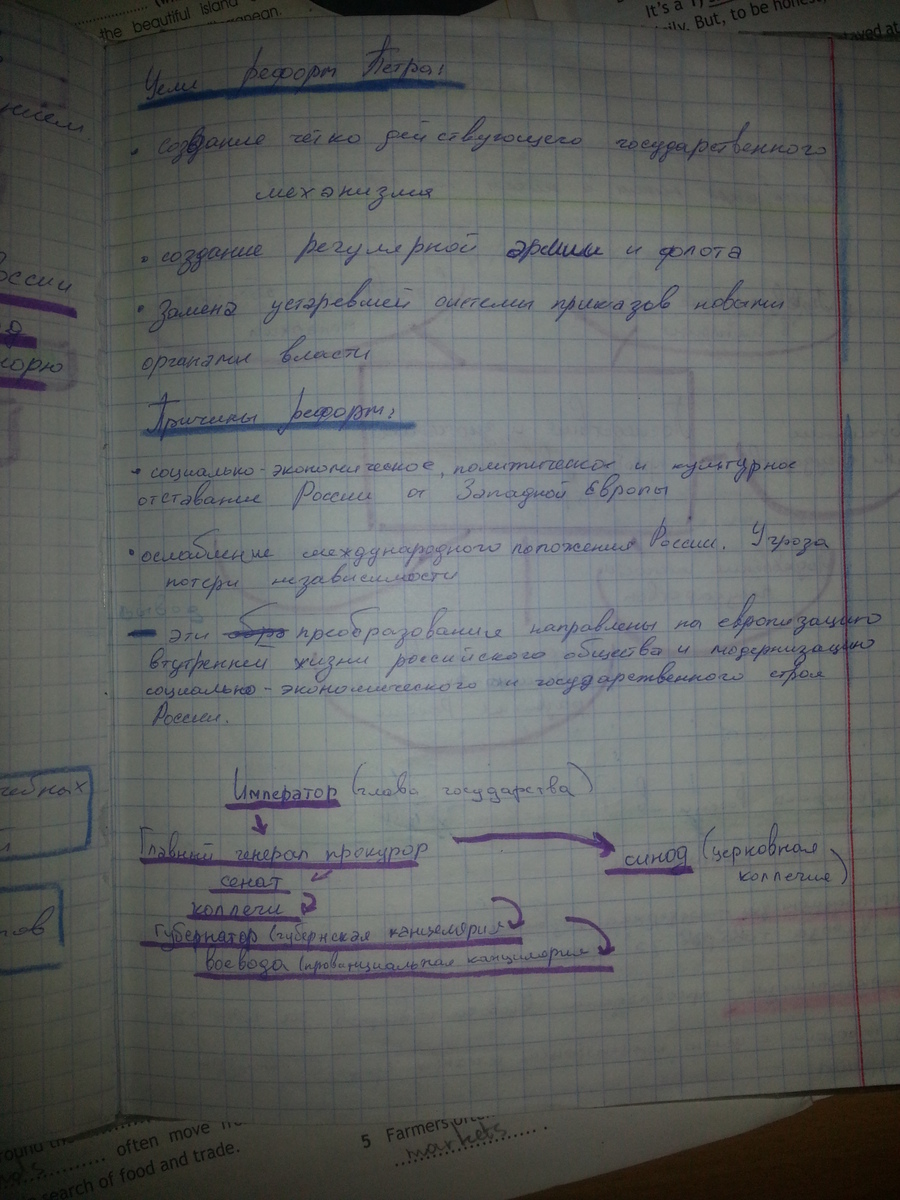 the beautiful island
It's a
ily. But, to be honest,
tayed at
Цели реформ Петра:
• создание чётко действующего государственного
механизма
• создание регулярной армии и флота
• Замена устаревшей системы приказов новыми
органами власти
Причины реформ:
• социально-экономическое, политическое и культурное
отставание России от Западной Европы
• ослабление международного положения России. Угроза
потери независимости
вывод
- эти преобразования направлены на европизацию
внутренней жизни российского общества и модернизацию
социально-экономического и государственного строя
России.
Император (глава государства)
Главный генерал прокурор
синод (церковная
коллегия)
сенат
коллеги
Губернатор (губернская канцелярия
воевода (провинциальная канцилярия
нием.
оссии
чебных
ов
often move
search of food and trade.
5 Farmers
markets